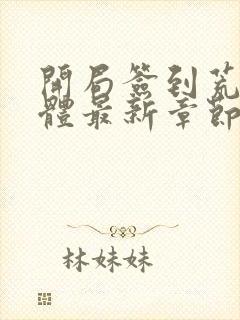 開局簽到荒
體最新章節
林妹妹